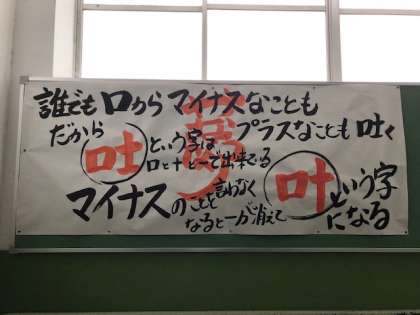 誰でも口からマイナスなことも
プラスなことも吐く
だから
吐という字は
口と十と一で出来ている
マイナスのことを言わなく
なると一が消えて
叶という字
になる
夢